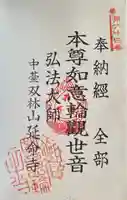 奉納經 全部
本尊如意輪觀世音
弘法大師
中臺双林山延命寺